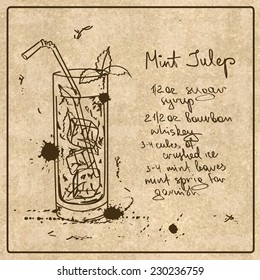 Mint Julep
1/2 oz sugar
syrup
2 1/2 oz bourbon
whiskey
3-4 cubes of
crushed ice
3-4 mint leaves
mint sprig for
garnish
shutterstock.com · 230236759